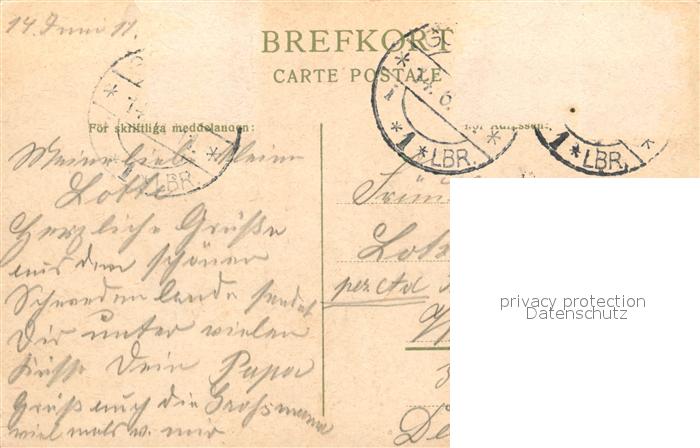 14. Juni 11.
BREFKORT
CARTE POSTALE
För skriftliga meddelanden:
Meine lieb. kleine
Lotte
Herzliche Grüße
aus dem schönen
Schwedenlande sendet
Dir unter vielen
Küsse Dein Papa
Grüß auch die Grossmama
viel mals v. mir
14.6.
1 * LBR. *
1 * LBR.
LBR
per Ad
privacy protection
Datenschutz